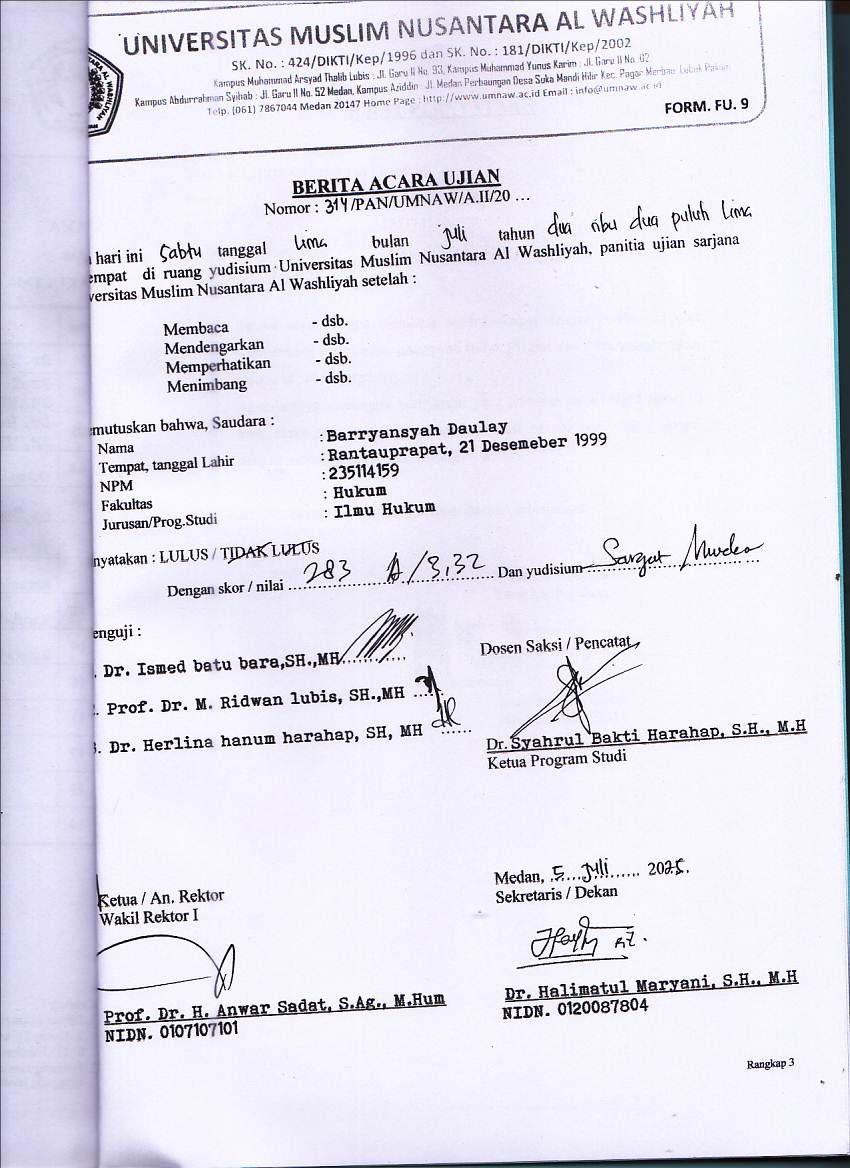 UNIVERSITAS MUSLIM NUSANTARA AL WASHLIYAH
SK. No. : 424/DIKTI/Kep/1996 dan SK. No. : 181/DIKTI/Kep/2002
Kampus Muhammad Arsyad Thalib Lubis : Jl. Garu II No. 93, Kampus Muhammad Yunus Karim : Jl. Garu II No. 02
Kampus Abdurrahman Syihab : Jl. Garu II No. 52 Medan, Kampus Aziddin : Jl. Medan Perbaungan Desa Suka Mandi Hilir Kec. Pagar Merbau Lubuk Pakam
Telp. (061) 7867044 Medan 20147 Home Page : http://www.umnaw.ac.id Email : info@umnaw.ac.id
FORM. FU. 9
BERITA ACARA UJIAN
Nomor : 314/PAN/UMNAW/A.II/20 ...
hari ini Sabtu tanggal lima bulan Juli tahun dua ribu dua puluh lima
empat di ruang yudisium Universitas Muslim Nusantara Al Washliyah, panitia ujian sarjana
versitas Muslim Nusantara Al Washliyah setelah :
Membaca - dsb.
Mendengarkan - dsb.
Memperhatikan - dsb.
Menimbang - dsb.
emutuskan bahwa, Saudara :
Nama : Barryansyah Daulay
Tempat, tanggal Lahir : Rantauprapat, 21 Desemeber 1999
NPM : 235114159
Fakultas : Hukum
Jurusan/Prog.Studi : Ilmu Hukum
nyatakan : LULUS / TIDAK LULUS
Dengan skor / nilai 283 A/3,32 Dan yudisium
enguji :
Dosen Saksi / Pencatat
. Dr. Ismed batu bara,SH.,MH
. Prof. Dr. M. Ridwan lubis, SH.,MH
3. Dr. Herlina hanum harahap, SH, MH
Dr. Syahrul Bakti Harahap, S.H., M.H
Ketua Program Studi
Medan, 5 Juli 2025.
Sekretaris / Dekan
Ketua / An. Rektor
Wakil Rektor I
Prof. Dr. H. Anwar Sadat, S.Ag., M.Hum
NIDN. 0107107101
Dr. Halimatul Maryani, S.H., M.H
NIDN. 0120087804
Rangkap 3